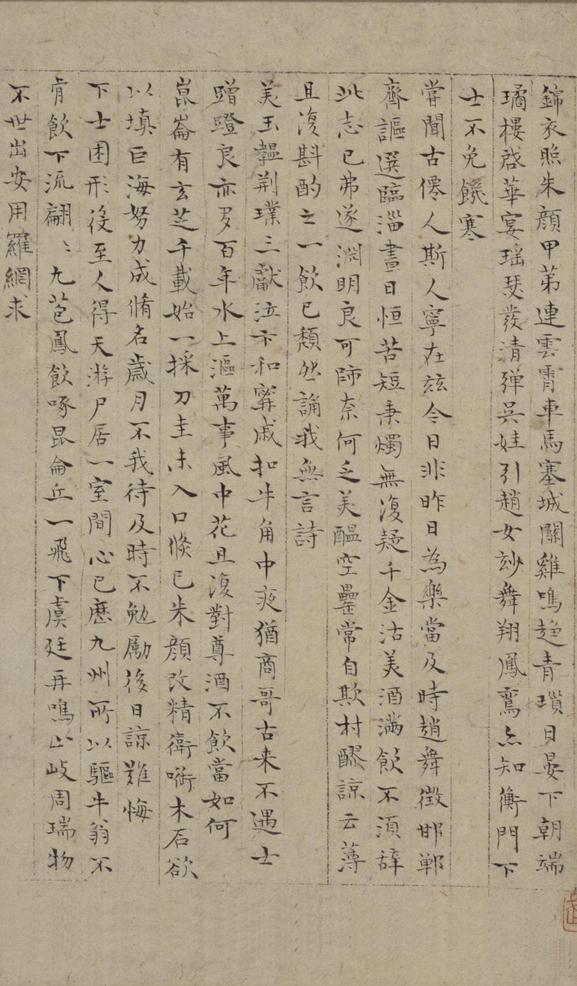 錦衣照朱顏甲第連雲霄車馬塞城闕雞鳴趍青瑣日晏下朝端
璚樓啓華宴瑶琴發清彈吳娃引趙女妙舞翔鳳鸞亦知衡門下
士不免饑寒
嘗聞古僊人斯人寧在兹今日非昨日為樂當及時趙舞徵邯鄲
齊謳選臨淄晝日恒苦短秉燭無復疑千金沽美酒滿飲不須辞
此志已弗遂淵明良可師奈何乏美醖空罍常自欺村醪諒云薄
且復斟酌之一飲已頽然誦我無言詩
美玉韞荆璞三獻泣卞和甯戚扣牛角中夜猶商哥古来不遇士
蹭蹬良亦多百年水上漚萬事風中花且復對尊酒不飲當如何
崑崙有玄芝千載始一採刀圭未入口倐已朱顏改精衛銜木石欲
以填巨海努力成脩名歲月不我待及時不勉勵後日諒難悔
下士困形役至人得天游尸居一室間心已歷九州所以驅牛翁不
肯飲下流翩〻九苞鳳飲啄昆侖丘一飛下虞廷再鳴出岐周瑞物
不世出安用羅網求